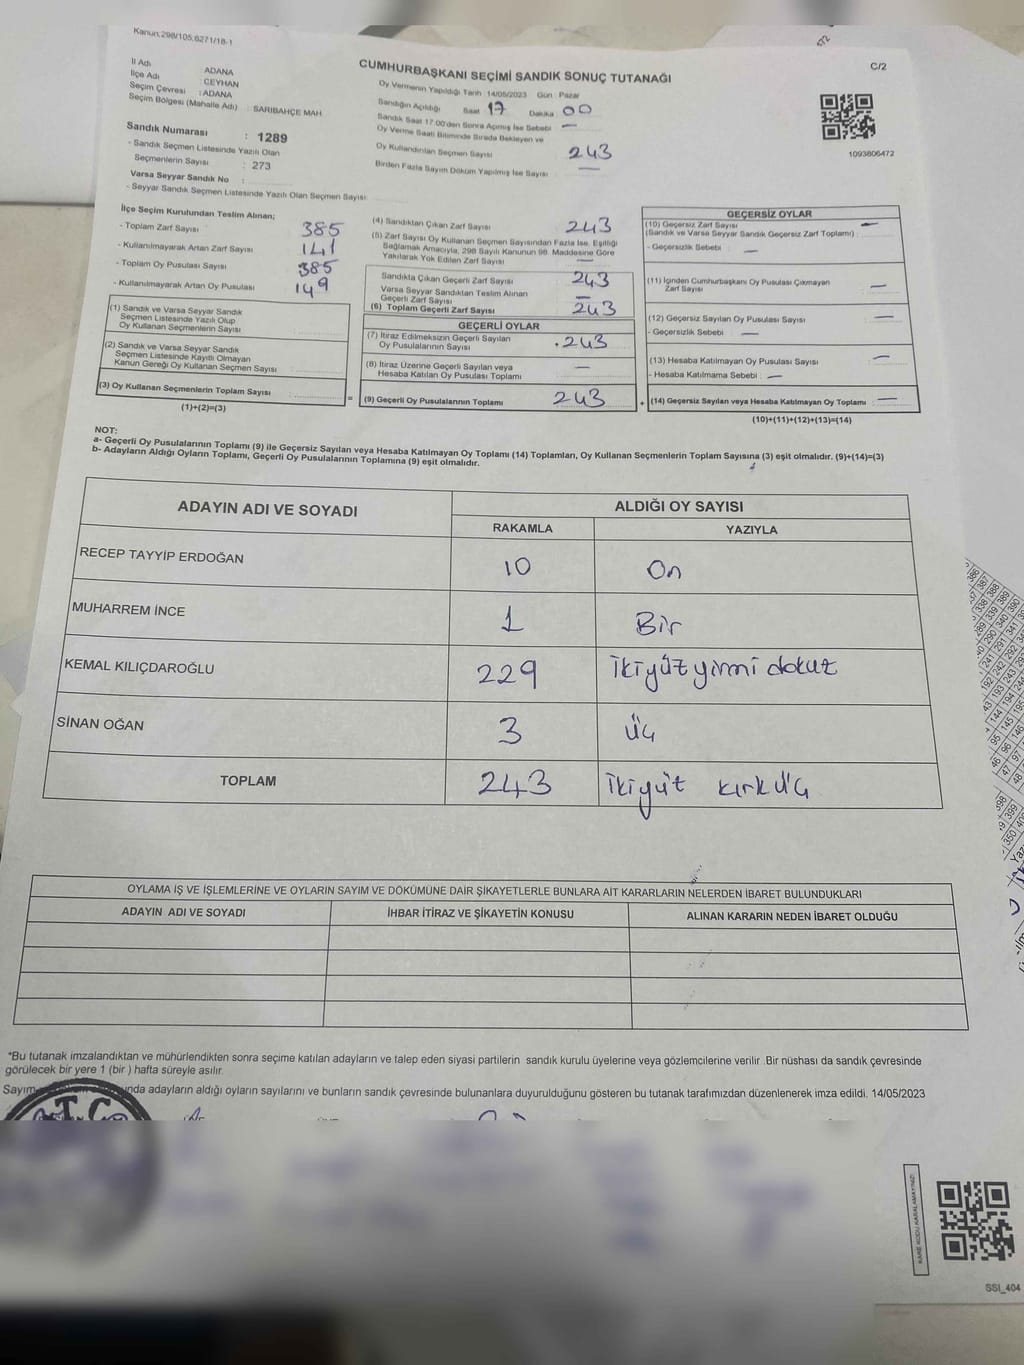 Kanun:298/105,6271/18-1
C/2
İl Adı : ADANA
İlçe Adı : CEYHAN
Seçim Çevresi : ADANA
Seçim Bölgesi (Mahalle Adı) : SARIBAHÇE MAH.
Sandık Numarası : 1289
- Sandık Seçmen Listesinde Yazılı Olan
Seçmenlerin Sayısı : 273
Varsa Seyyar Sandık No :
- Seyyar Sandık Seçmen Listesinde Yazılı Olan Seçmen Sayısı:
CUMHURBAŞKANI SEÇİMİ SANDIK SONUÇ TUTANAĞI
Oy Vermenin Yapıldığı Tarih :14/05/2023 Gün : Pazar
Sandığın Açıldığı Saat 17 Dakika 00
Sandık Saat 17:00'den Sonra Açılmış İse Sebebi —
Oy Verme Saati Bitiminde Sırada Bekleyen ve
Oy Kullandırılan Seçmen Sayısı 243
Birden Fazla Sayım Döküm Yapılmış İse Sayısı —
1093806472
İlçe Seçim Kurulundan Teslim Alınan;
- Toplam Zarf Sayısı 385
- Kullanılmayarak Artan Zarf Sayısı 141
- Toplam Oy Pusulası Sayısı 385
- Kullanılmayarak Artan Oy Pusulası 149
(1) Sandık ve Varsa Seyyar Sandık
Seçmen Listesinde Yazılı Olup
Oy Kullanan Seçmenlerin Sayısı
(2) Sandık ve Varsa Seyyar Sandık
Seçmen Listesinde Kayıtlı Olmayan
Kanun Gereği Oy Kullanan Seçmen Sayısı
(3) Oy Kullanan Seçmenlerin Toplam Sayısı =
(1)+(2)=(3)
(4) Sandıktan Çıkan Zarf Sayısı 243
(5) Zarf Sayısı Oy Kullanan Seçmen Sayısından Fazla İse, Eşitliği
Sağlamak Amacıyla, 298 Sayılı Kanunun 98. Maddesine Göre
Yakılarak Yok Edilen Zarf Sayısı —
Sandıkta Çıkan Geçerli Zarf Sayısı 243
Varsa Seyyar Sandıktan Teslim Alınan
Geçerli Zarf Sayısı —
(6) Toplam Geçerli Zarf Sayısı 243
GEÇERLİ OYLAR
(7) İtiraz Edilmeksizin Geçerli Sayılan
Oy Pusulalarının Sayısı 243
(8) İtiraz Üzerine Geçerli Sayılan veya
Hesaba Katılan Oy Pusulası Toplamı —
(9) Geçerli Oy Pusulalarının Toplamı 243 +
GEÇERSİZ OYLAR
(10) Geçersiz Zarf Sayısı —
(Sandık ve Varsa Seyyar Sandık Geçersiz Zarf Toplamı) :
- Geçersizlik Sebebi : —
(11) İçinden Cumhurbaşkanı Oy Pusulası Çıkmayan
Zarf Sayısı —
(12) Geçersiz Sayılan Oy Pusulası Sayısı —
- Geçersizlik Sebebi : —
(13) Hesaba Katılmayan Oy Pusulası Sayısı —
- Hesaba Katılmama Sebebi : —
(14) Geçersiz Sayılan veya Hesaba Katılmayan Oy Toplamı : —
(10)+(11)+(12)+(13)=(14)
NOT:
a- Geçerli Oy Pusulalarının Toplamı (9) ile Geçersiz Sayılan veya Hesaba Katılmayan Oy Toplamı (14) Toplamları, Oy Kullanan Seçmenlerin Toplam Sayısına (3) eşit olmalıdır. (9)+(14)=(3)
b- Adayların Aldığı Oyların Toplamı, Geçerli Oy Pusulalarının Toplamına (9) eşit olmalıdır.
ADAYIN ADI VE SOYADI ALDIĞI OY SAYISI
RAKAMLA YAZIYLA
RECEP TAYYİP ERDOĞAN 10 On
MUHARREM İNCE 1 Bir
KEMAL KILIÇDAROĞLU 229 İkiyüzyirmi dokuz
SİNAN OĞAN 3 Üç
TOPLAM 243 İkiyüz kırküç
OYLAMA İŞ VE İŞLEMLERİNE VE OYLARIN SAYIM VE DÖKÜMÜNE DAİR ŞİKAYETLERLE BUNLARA AİT KARARLARIN NELERDEN İBARET BULUNDUKLARI
ADAYIN ADI VE SOYADI İHBAR İTİRAZ VE ŞİKAYETİN KONUSU ALINAN KARARIN NEDEN İBARET OLDUĞU
*Bu tutanak imzalandıktan ve mühürlendikten sonra seçime katılan adayların ve talep eden siyasi partilerin sandık kurulu üyelerine veya gözlemcilerine verilir .Bir nüshası da sandık çevresinde
görülecek bir yere 1 (bir ) hafta süreyle asılır.
nda adayların aldığı oyların sayılarını ve bunların sandık çevresinde bulunanlara duyurulduğunu gösteren bu tutanak tarafımızdan düzenlenerek imza edildi. 14/05/2023
T.C.
KARE KODU KARALAMAYINIZ!
SSI_404